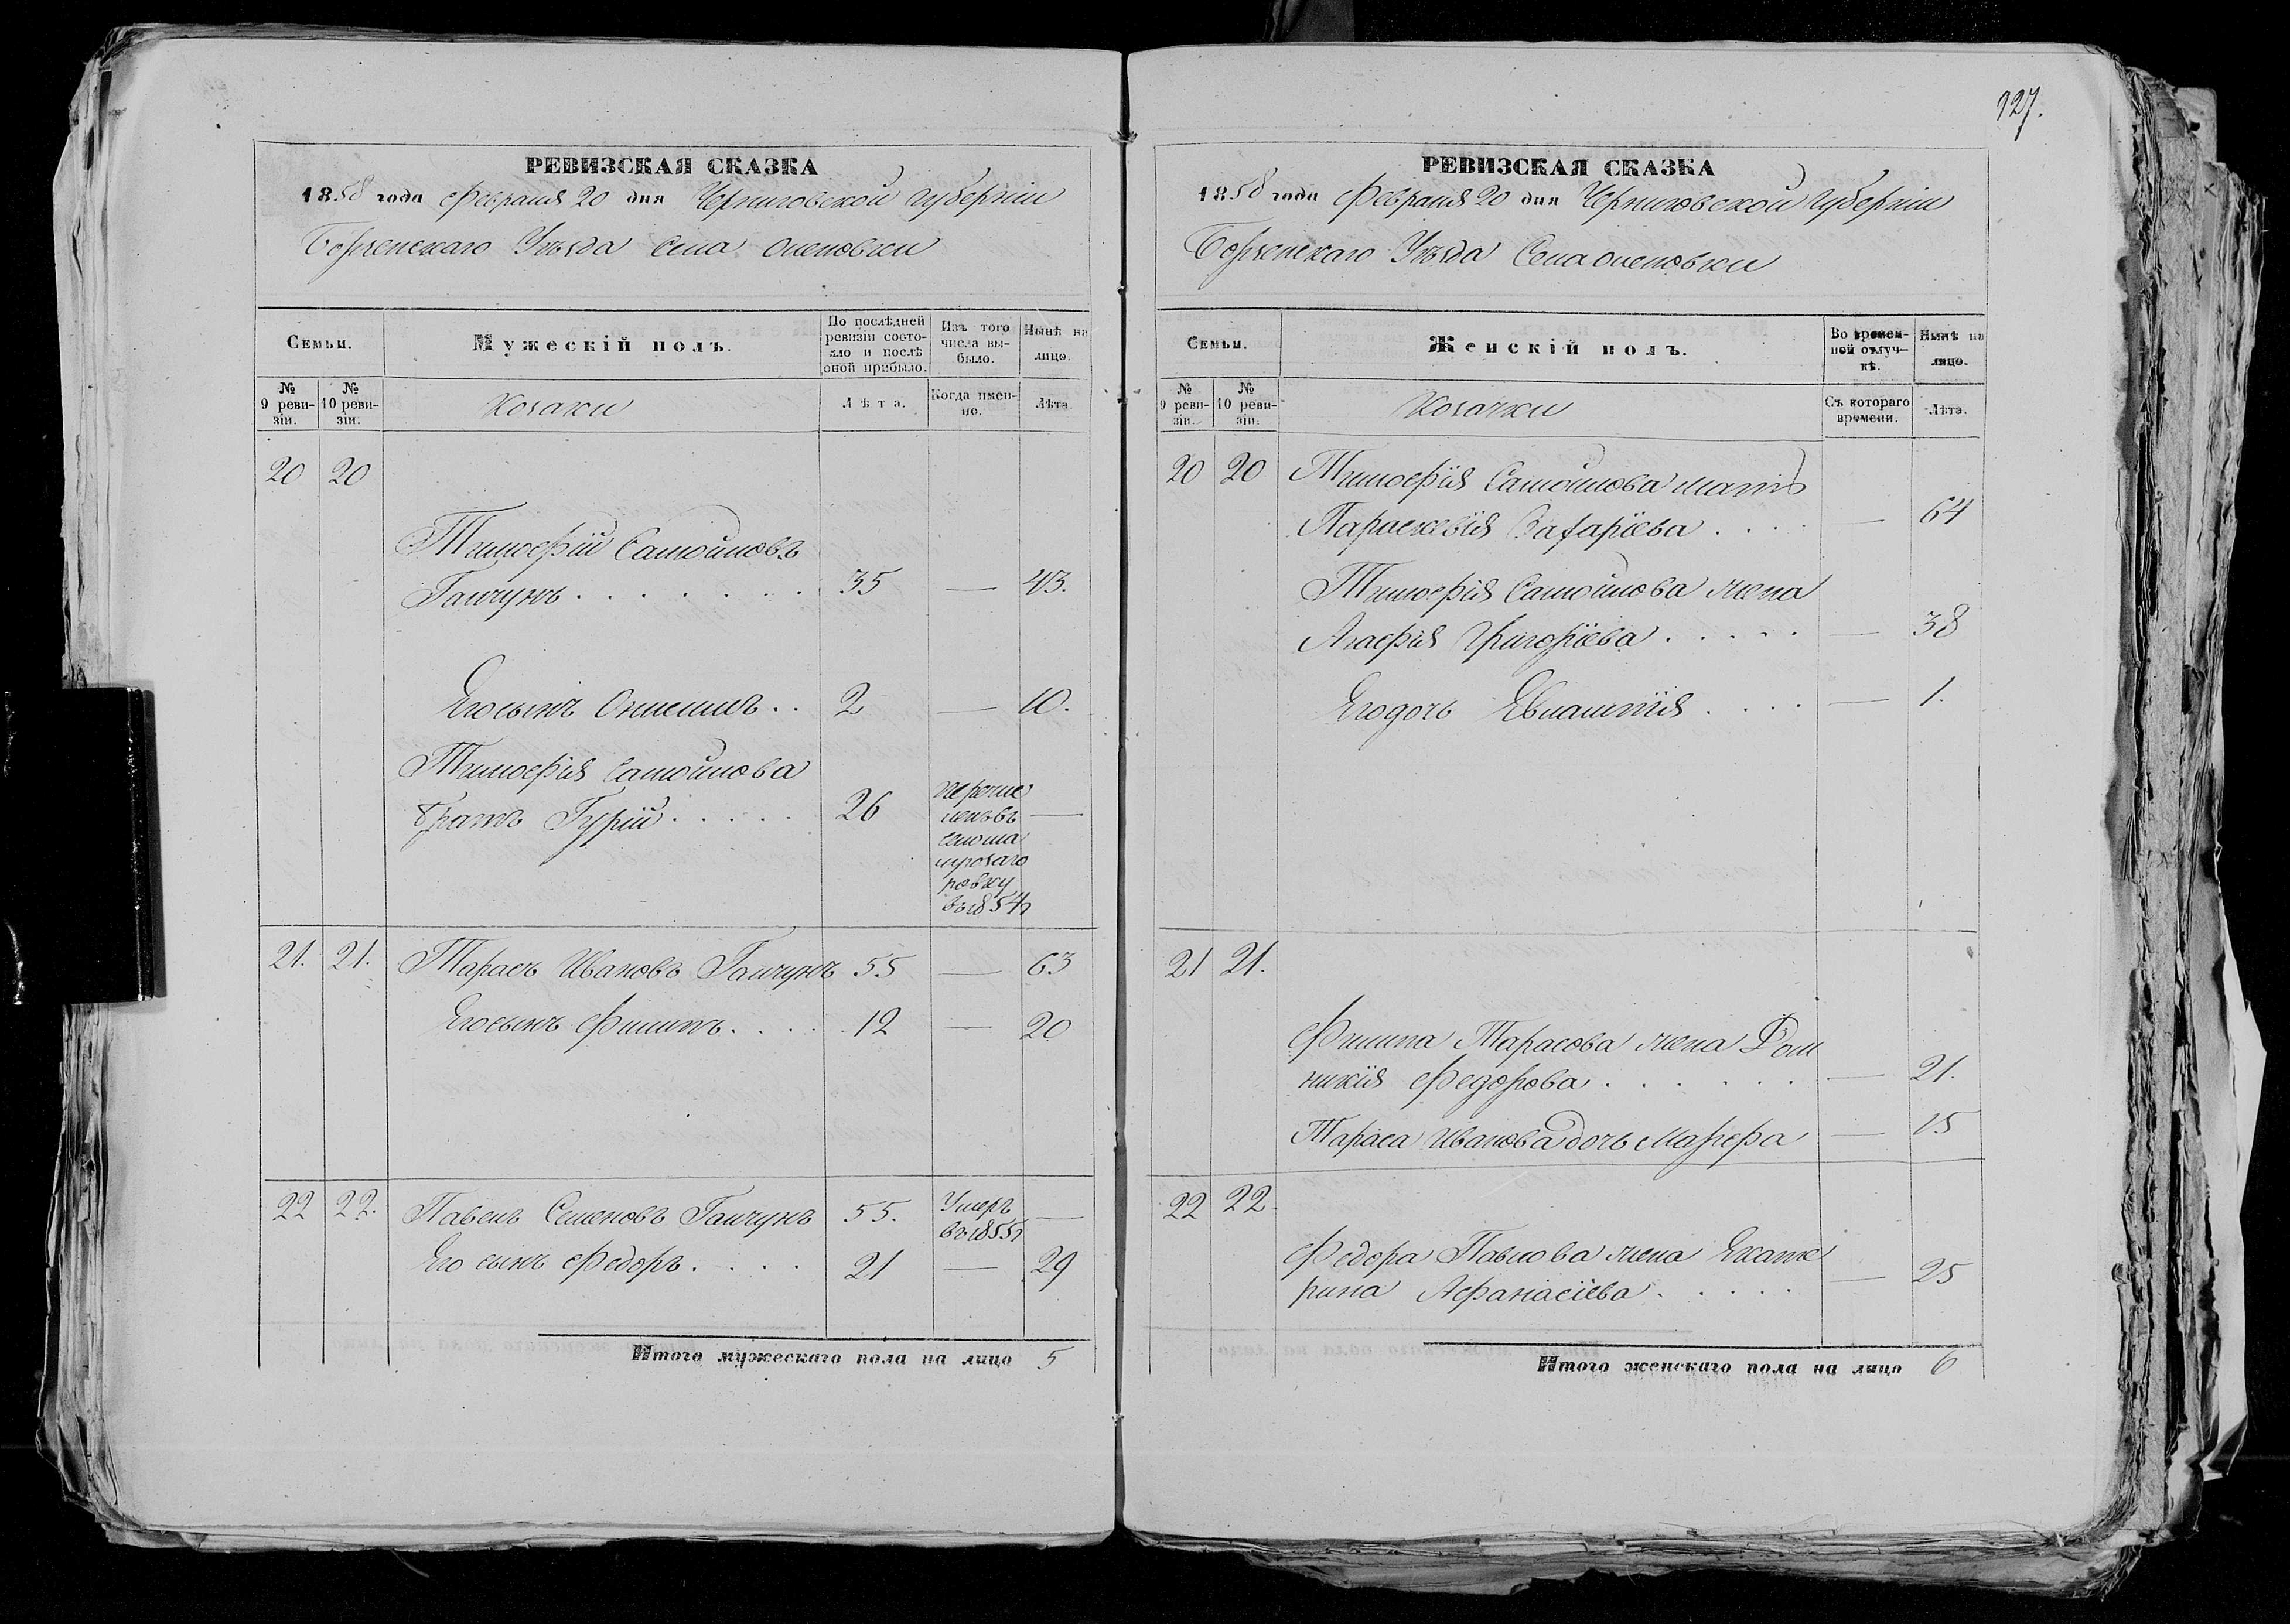 127.
РЕВИЗСКАЯ СКАЗКА
1858 года Февраля 20 дня Черниговской Губерніи
Борзенскаго Уѣзда Села Оленовки
Семьи.
Мужескій полъ.
По послѣдней ревизіи состояло и послѣ оной прибыло.
Изъ того числа выбыло.
Нынѣ на лицо.
№ 9 ревизіи.
№ 10 ревизіи.
Козаки
Лѣта.
Когда именно.
Лѣта.
20 20
Тимофій Самойловъ
Галчунъ . . . . . . . 35 — 43.
Его сынъ Онисимъ . . 2 — 10.
Тимофія Самойлова
братъ Гурій . . . . . 26 —
перечис
ленъ въ
въ 1854 г
21. 21. Тарасъ Ивановъ Галчунъ 55 — 63
Его сынъ Филипъ . . . . 12 — 20
22 22. Павелъ Семеновъ Галчунъ 55. Умеръ —
въ 1855 г
Его сынъ Федоръ . . . . 21 — 29
Итого мужескаго пола на лицо 5
РЕВИЗСКАЯ СКАЗКА
1858 года Февраля 20 дня Черниговской Губерніи
Борзенскаго Уѣзда Села Оленовки
Семьи.
Женскій полъ.
Во временной отлучкѣ.
Нынѣ на лицо.
№ 9 ревизіи.
№ 10 ревизіи.
Козачки
Съ котораго времени.
Лѣта.
20 20 Тимофія Самойлова мать
Параскевія Захаріева . . . . — 64
Тимофія Самойлова жена
Агафія Григоріева . . . . . — 38
Его дочь Евлампія . . . . — 1.
21 21.
Филипа Тарасова жена Дом
никія Федорова . . . . . . — 21.
Тараса Иванова дочь Марфа — 15
22 22.
Федора Павлова жена Екате
рина Афанасіева . . . . . — 25
Итого женскаго пола на лицо 6